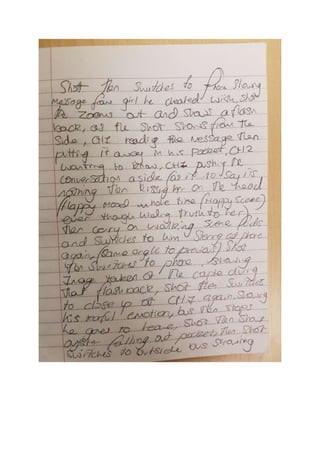 Shot then switches to Phone Showing
Message from girl he cheated with, Shot
the zooms out and shows a flash
back, as the shot shows from the
Side, CH1 reading the message then
putting it away in his pocket, CH2
wanting to know, CH1 pushing the
conversation aside (as if to say its
nothing then kissing her on the head
(Happy mood whole time (Happy Scene)
even though hiding truth to her)
then carry on walking scene fades
and switches to him at phone
again, (same angle to previous) Shot
then switches to phone, showing
Image taken of the couple during
that flashback, shot then switches
to close up of CH1 again showing
his emotion, bus then stops
he goes to leave, shot then show
falling out pocket, then shot
switches to outside bus showing